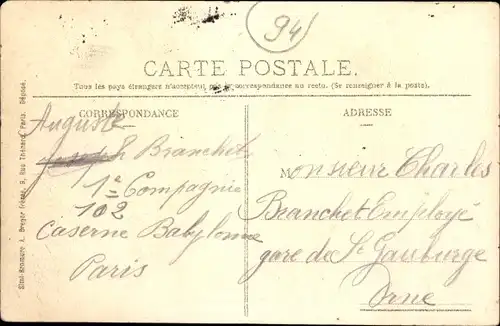 94
CARTE POSTALE.
Tous les pays étrangers n'acceptent pas la correspondance au recto. (Se renseigner à la poste).
CORRESPONDANCE
Auguste
Joseph Branchet
1e Compagnie
102
Caserne Babylone
Paris
ADRESSE
Monsieur Charles
Branchet Employé
gare de St Gauburge
Orne
Simi-Bromure A. Breger frères, 9, Rue Thénard, Paris. Déposé.